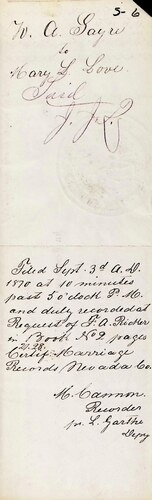 S-6
W. A. Sayre
to
Mary L Love
Paid
Filed Sept. 3d A. D.
1870 at 10 minutes
past 5 o'clock P. M.
and duly recorded at
Request of F. A. Ricker
in Book No 2 pages
Certif Marriage
Records Nevada Co.
M. Cannon
Recorder
pr L. Garthe
Depy